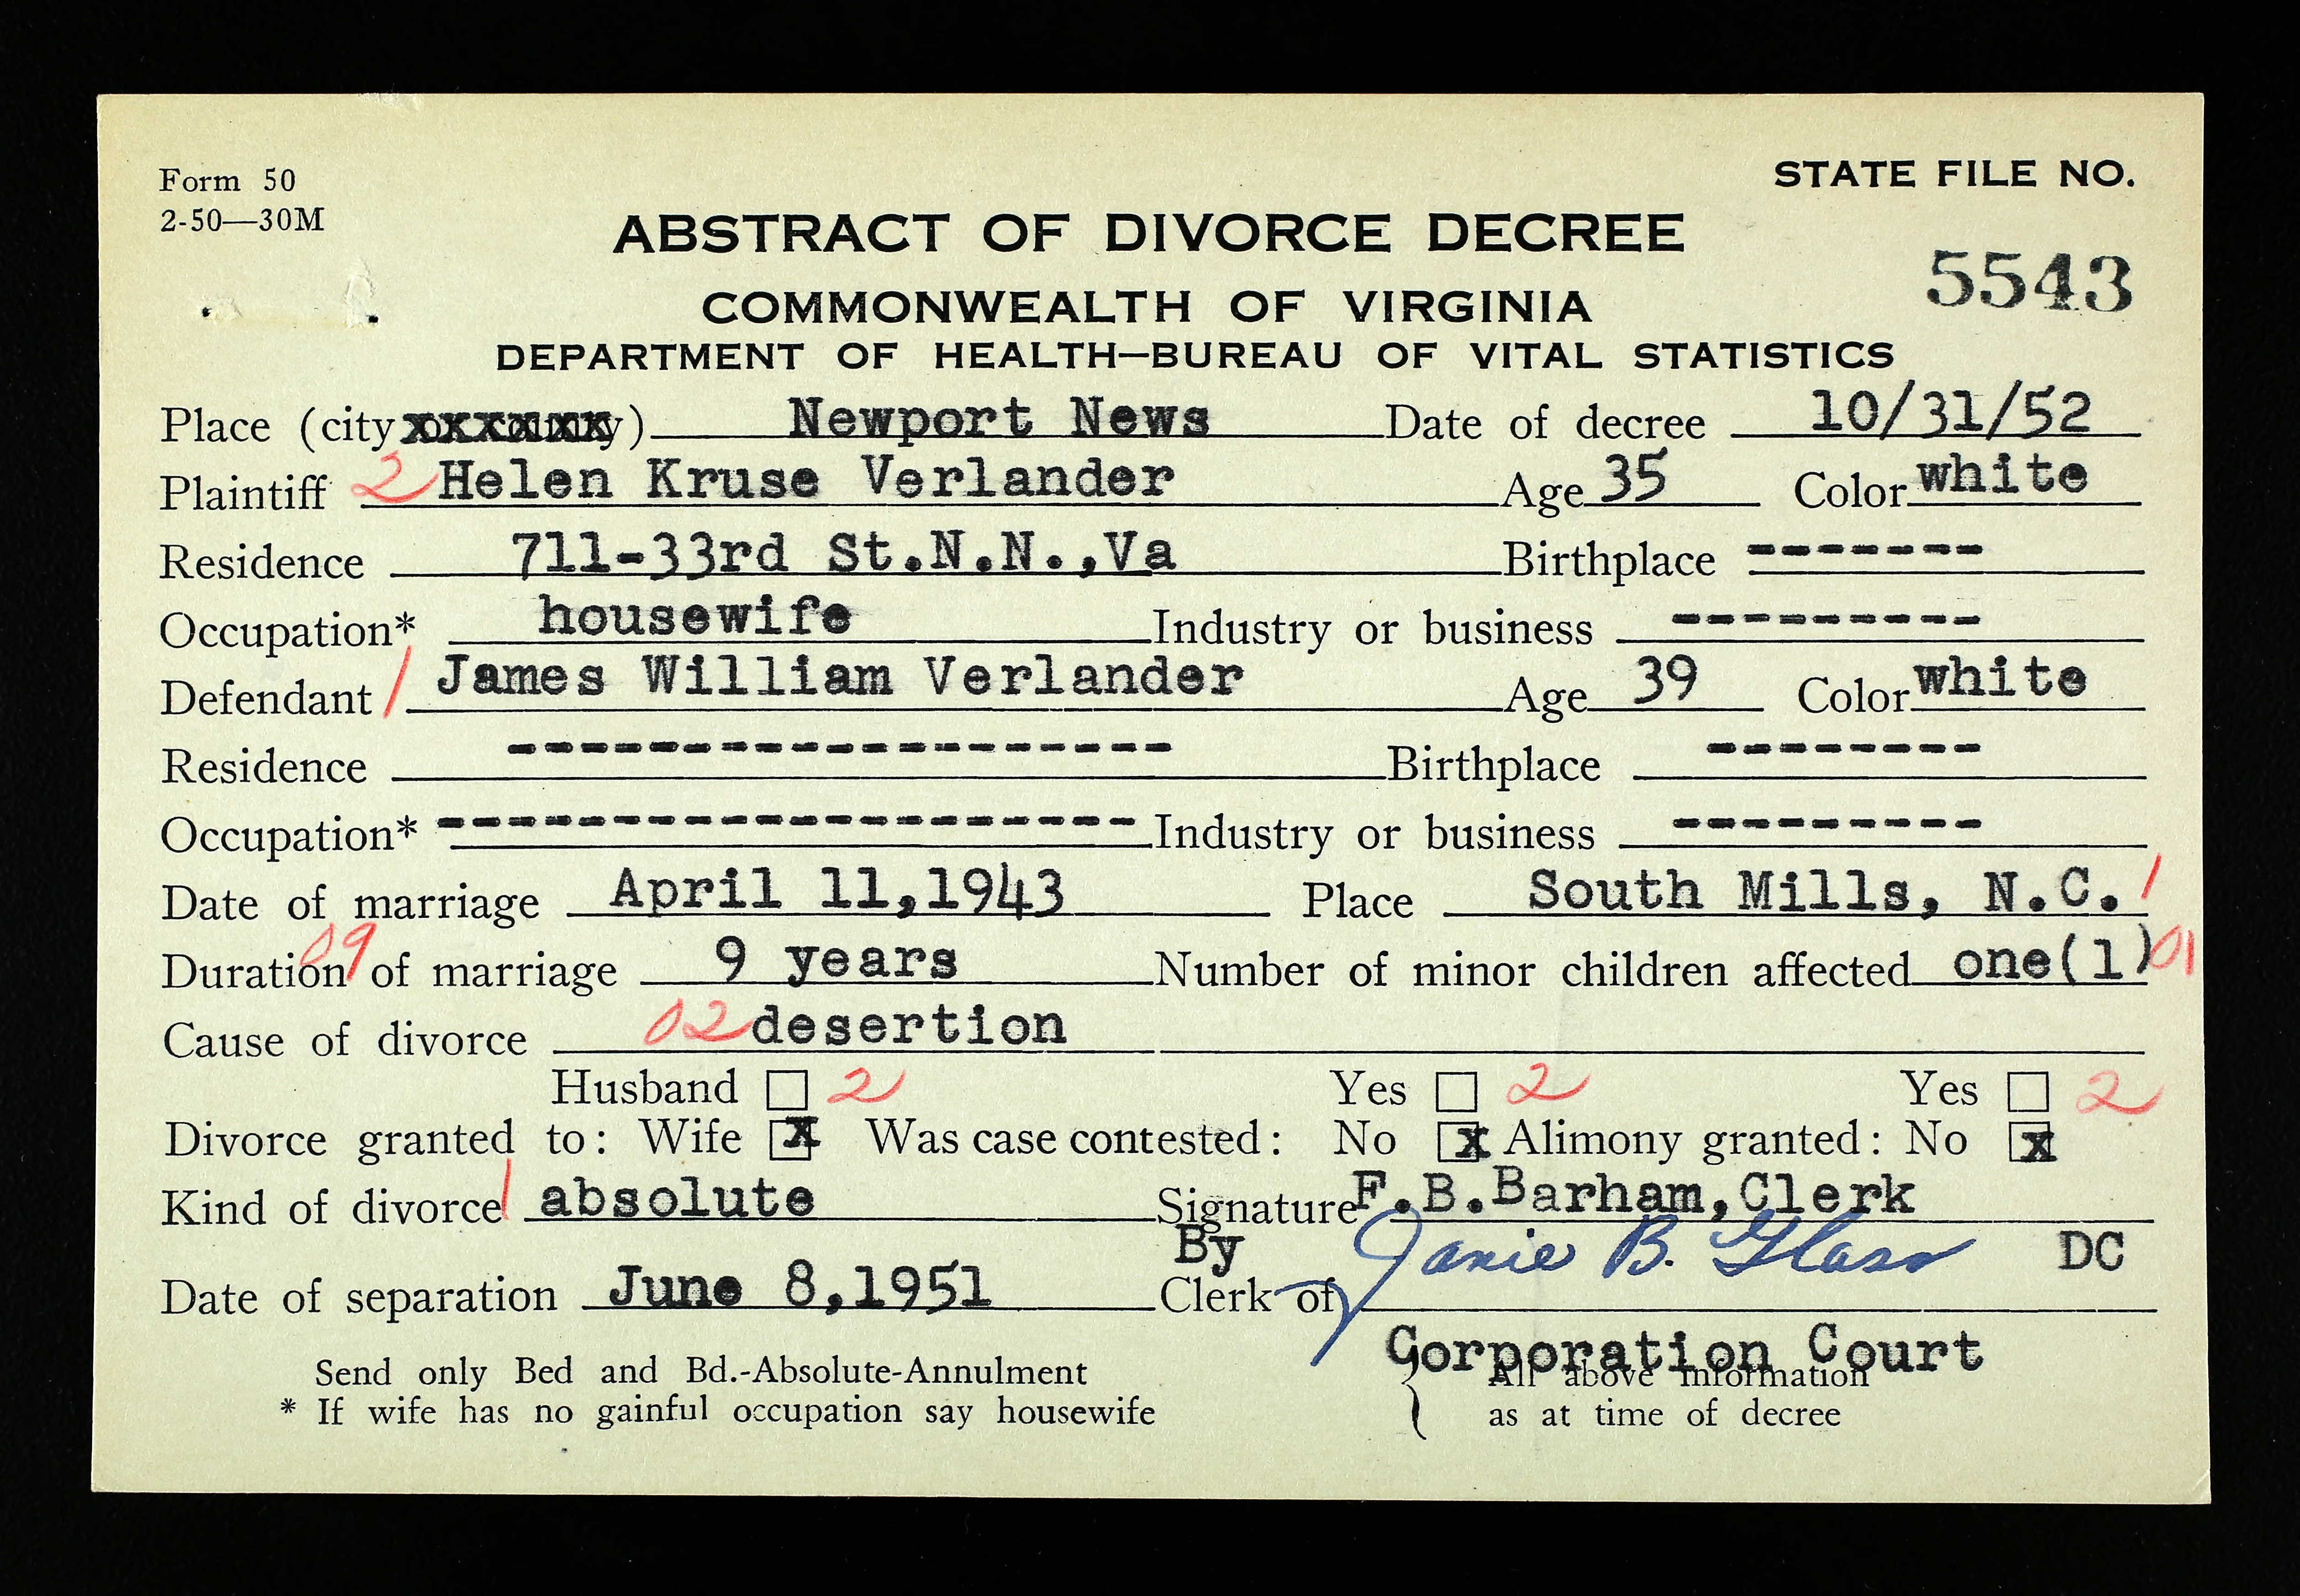 Form 50
STATE FILE NO.
2-50—30M
ABSTRACT OF DIVORCE DECREE
5543
COMMONWEALTH OF VIRGINIA
DEPARTMENT OF HEALTH—BUREAU OF VITAL STATISTICS
Place (city or county) Newport News Date of decree 10/31/52
Plaintiff 2 Helen Kruse Verlander Age 35 Color white
Residence 711-33rd St.N.N.,Va Birthplace -------
Occupation* housewife Industry or business ---------
Defendant 1 James William Verlander Age 39 Color white
Residence ------------------- Birthplace --------
Occupation* -------------------- Industry or business ---------
Date of marriage April 11,1943 Place South Mills, N.C. 1
09
Duration of marriage 9 years Number of minor children affected one(1) 01
Cause of divorce 02 desertion
Husband ☐ 2 Yes ☐ 2 Yes ☐ 2
Divorce granted to: Wife x Was case contested: No x Alimony granted: No x
Kind of divorce 1 absolute Signature F.B.Barham,Clerk
By Janie B. Glass DC
Date of separation June 8,1951 Clerk of
Corporation Court
Send only Bed and Bd.-Absolute-Annulment All above information
* If wife has no gainful occupation say housewife as at time of decree